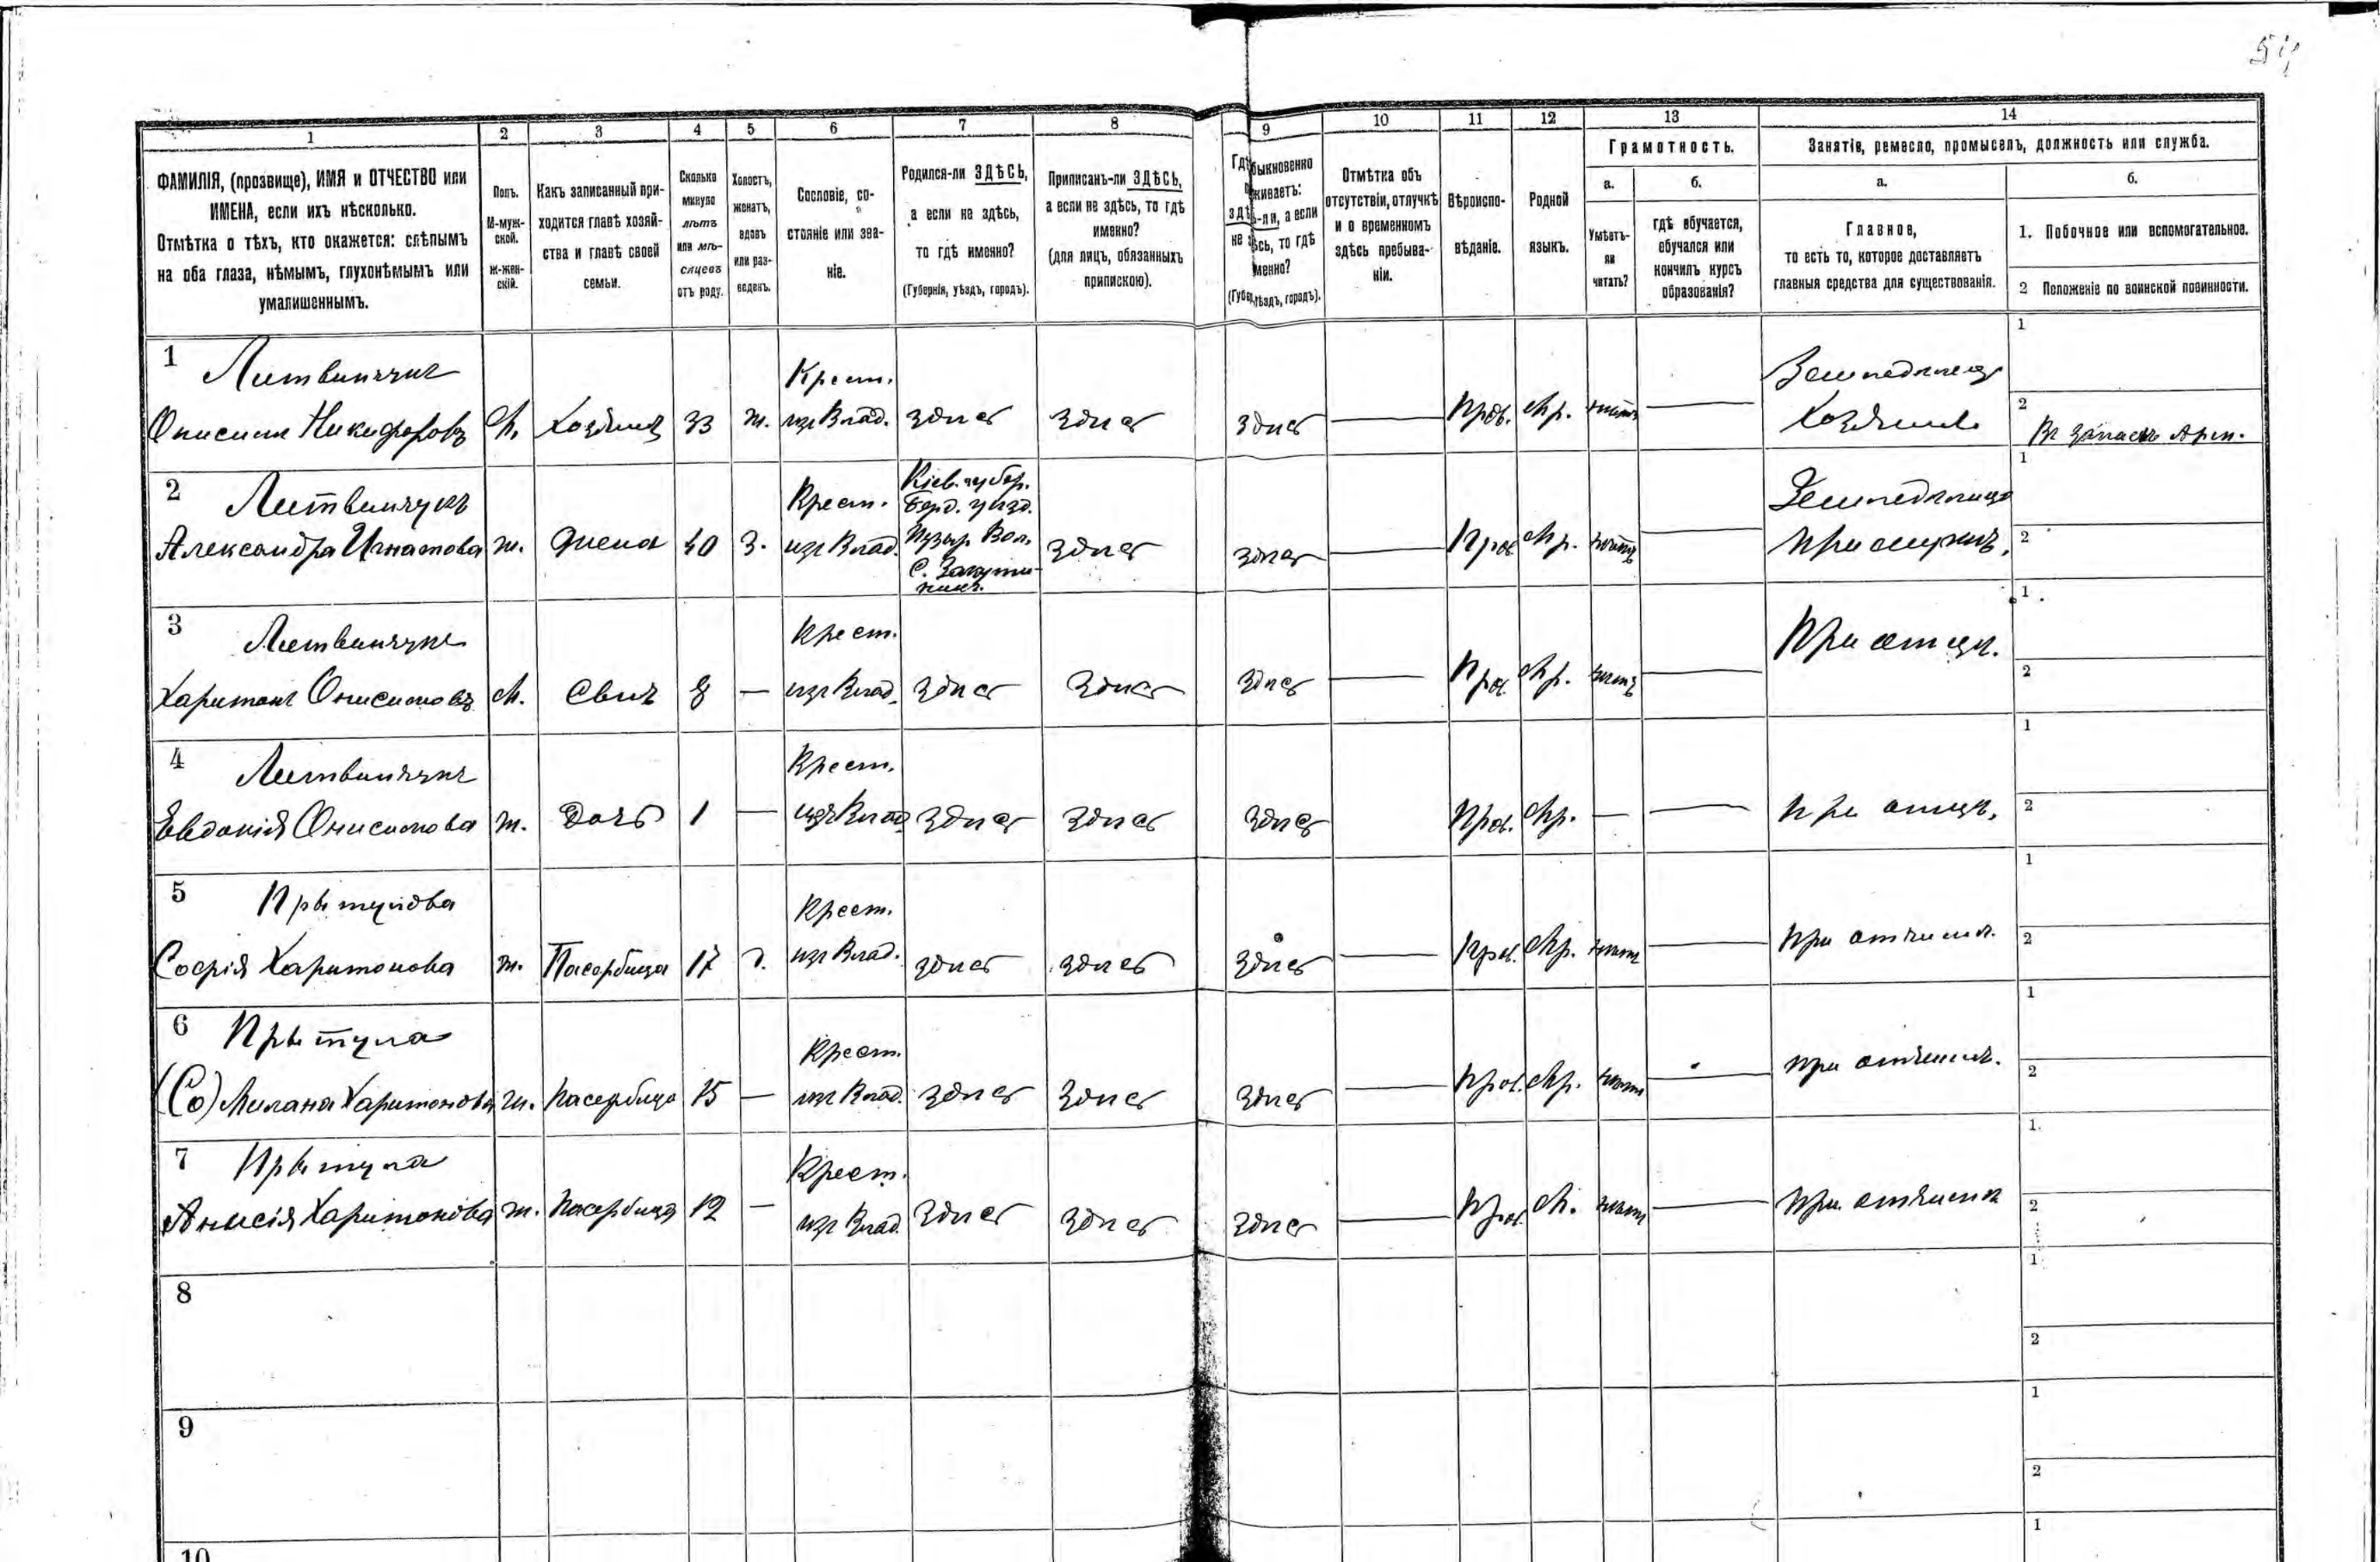 54
1 2 3 4 5 6 7 8 9 10 11 12 13 14
ФАМИЛІЯ, (прозвище), ИМЯ и ОТЧЕСТВО или
ИМЕНА, если ихъ нѣсколько.
Отмѣтка о тѣхъ, кто окажется: слѣпымъ
на оба глаза, нѣмымъ, глухонѣмымъ или
умалишеннымъ.
Полъ.
М-муж-
ской.
Ж-жен-
скій.
Какъ записанный при-
ходится главѣ хозяй-
ства и главѣ своей
семьи.
Сколько
минуло
лѣтъ
или мѣ-
сяцевъ
отъ роду.
Холостъ,
женатъ,
вдовъ
или раз-
веденъ.
Сословіе, со-
стояніе или зва-
ніе.
Родился-ли ЗДѢСЬ,
а если не здѣсь,
то гдѣ именно?
(Губернія, уѣздъ, городъ).
Приписанъ-ли ЗДѢСЬ,
а если не здѣсь, то гдѣ
именно?
(для лицъ, обязанныхъ
припискою).
Гдѣ быкновенно
живаетъ:
здѣ-ли, а если
не здѣсь, то гдѣ
менно?
(Губер, уѣздъ, городъ).
Отмѣтка объ
отсутствіи, отлучкѣ
и о временномъ
здѣсь пребыва-
ніи.
Вѣроиспо-
вѣданіе.
Родной
языкъ.
Грамотность.
а.
Умѣетъ-
ли
читать?
б.
гдѣ обучается,
обучался или
кончилъ курсъ
образованія?
Занятіе, ремесло, промыселъ, должность или служба.
а.
Главное,
то есть то, которое доставляетъ
главныя средства для существованія.
б.
1. Побочное или вспомогательное.
2 Положеніе по воинской повинности.
1 Литвинчукъ Крест. Земледѣлецъ 1
Онисимъ Никифоровъ М. Хозяинъ 33 ж. изъ Влад. здѣсь здѣсь здѣсь — Прав. Мр. нѣтъ — Хозяинъ 2 Въ запасѣ Арм.
2 Литвинчукъ Крест. Кіев. губер. Земледѣлица 1
Берд. уѣзд.
Александра Игнатова ж. Жена 40 З. изъ Влад. Пузыр. Вол. здѣсь здѣсь — Прав. Мр. нѣтъ — при мужѣ, 2
С.
3 Литвинчукъ Крест. При отцѣ. 1
Харитонъ Онисимовъ М. Сынъ 8 — изъ Влад. здѣсь здѣсь здѣсь — Прав. Мр. нѣтъ — 2
4 Литвинчукъ Крест. 1
Евдокія Онисимова ж. Дочь 1 — изъ Влад. здѣсь здѣсь здѣсь Прав. Мр. — — при отцѣ. 2
5 Крест. 1
Софія Харитонова ж. Пасербица 17 д. изъ Влад. здѣсь здѣсь здѣсь — Прав. Мр. нѣтъ — при отчимѣ. 2
6 Прытула Крест. 1
(Со) Милана Харитонова ж. Пасербица 15 — изъ Влад. здѣсь здѣсь здѣсь — Прав. Мр. нѣтъ — при отчимѣ. 2
7 Прытула Крест. 1.
Анисія Харитонова ж. Пасербица 12 — изъ Влад. здѣсь здѣсь здѣсь — Прав. М. нѣтъ — при отчимѣ 2
8 1
2
9 1
2
10 1